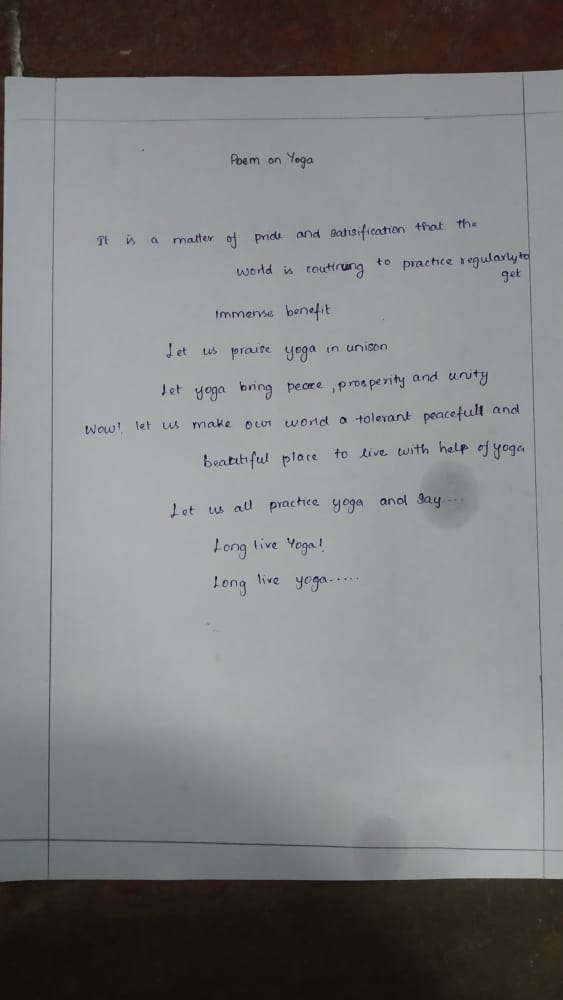 Poem on Yoga
It is a matter of pride and satisification that the
world is coutinuing to practice regularly to
get
Immense benefit
Let us praise yoga in unison
Let yoga bring peace, prosperity and unity
Wow! let us make our world a tolerant peacefull and
beautiful place to live with help of yoga
Let us all practice yoga and say....
Long live Yoga!
Long live yoga.....